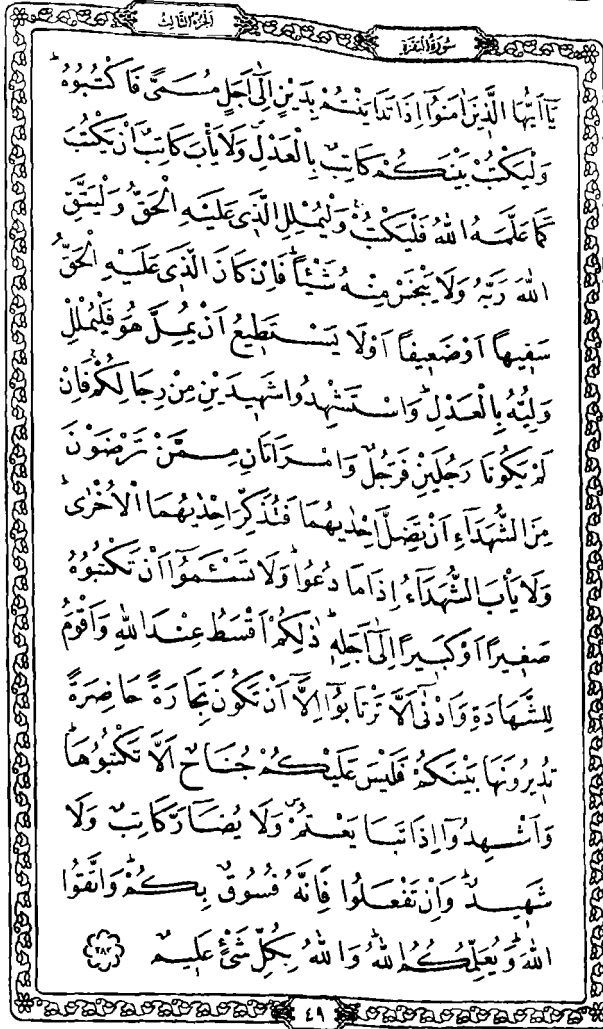 الجزء الثالث
سورة البقرة
يَٓا اَيُّهَا الَّذ۪ينَ اٰمَنُٓوا اِذَا تَدَايَنْتُمْ بِدَيْنٍ اِلٰٓى اَجَلٍ مُسَمًّى فَاكْتُبُوهُۜ
وَلْيَكْتُبْ بَيْنَكُمْ كَاتِبٌ بِالْعَدْلِۖ وَلَا يَأْبَ كَاتِبٌ اَنْ يَكْتُبَ
كَمَا عَلَّمَهُ اللّٰهُ فَلْيَكْتُبْۚ وَلْيُمْلِلِ الَّذ۪ي عَلَيْهِ الْحَقُّ وَلْيَتَّقِ
اللّٰهَ رَبَّهُ وَلَا يَبْخَسْ مِنْهُ شَيْـًٔاۜ فَاِنْ كَانَ الَّذ۪ي عَلَيْهِ الْحَقُّ
سَف۪يهًا اَوْ ضَع۪يفًا اَوْ لَا يَسْتَط۪يعُ اَنْ يُمِلَّ هُوَ فَلْيُمْلِلْ
وَلِيُّهُ بِالْعَدْلِۜ وَاسْتَشْهِدُوا شَه۪يدَيْنِ مِنْ رِجَالِكُمْۚ فَاِنْ
لَمْ يَكُونَا رَجُلَيْنِ فَرَجُلٌ وَامْرَاَتَانِ مِمَّنْ تَرْضَوْنَ
مِنَ الشُّهَدَٓاءِ اَنْ تَضِلَّ اِحْدٰيهُمَا فَتُذَكِّرَ اِحْدٰيهُمَا الْاُخْرٰىۜ
وَلَا يَأْبَ الشُّهَدَٓاءُ اِذَا مَا دُعُواۜ وَلَا تَسْـَٔمُٓوا اَنْ تَكْتُبُوهُ
صَغ۪يرًا اَوْ كَب۪يرًا اِلٰٓى اَجَلِه۪ۜ ذٰلِكُمْ اَقْسَطُ عِنْدَ اللّٰهِ وَاَقْوَمُ
لِلشَّهَادَةِ وَاَدْنٰٓى اَلَّا تَرْتَابُٓوا اِلَّٓا اَنْ تَكُونَ تِجَارَةً حَاضِرَةً
تُد۪يرُونَهَا بَيْنَكُمْ فَلَيْسَ عَلَيْكُمْ جُنَاحٌ اَلَّا تَكْتُبُوهَاۜ
وَاَشْهِدُٓوا اِذَا تَبَايَعْتُمْۖ وَلَا يُضَٓارَّ كَاتِبٌ وَلَا
شَه۪يدٌۜ وَاِنْ تَفْعَلُوا فَاِنَّهُ فُسُوقٌ بِكُمْۜ وَاتَّقُوا
اللّٰهَۜ وَيُعَلِّمُكُمُ اللّٰهُۜ وَاللّٰهُ بِكُلِّ شَيْءٍ عَل۪يمٌ ٢٨٢
٤٩